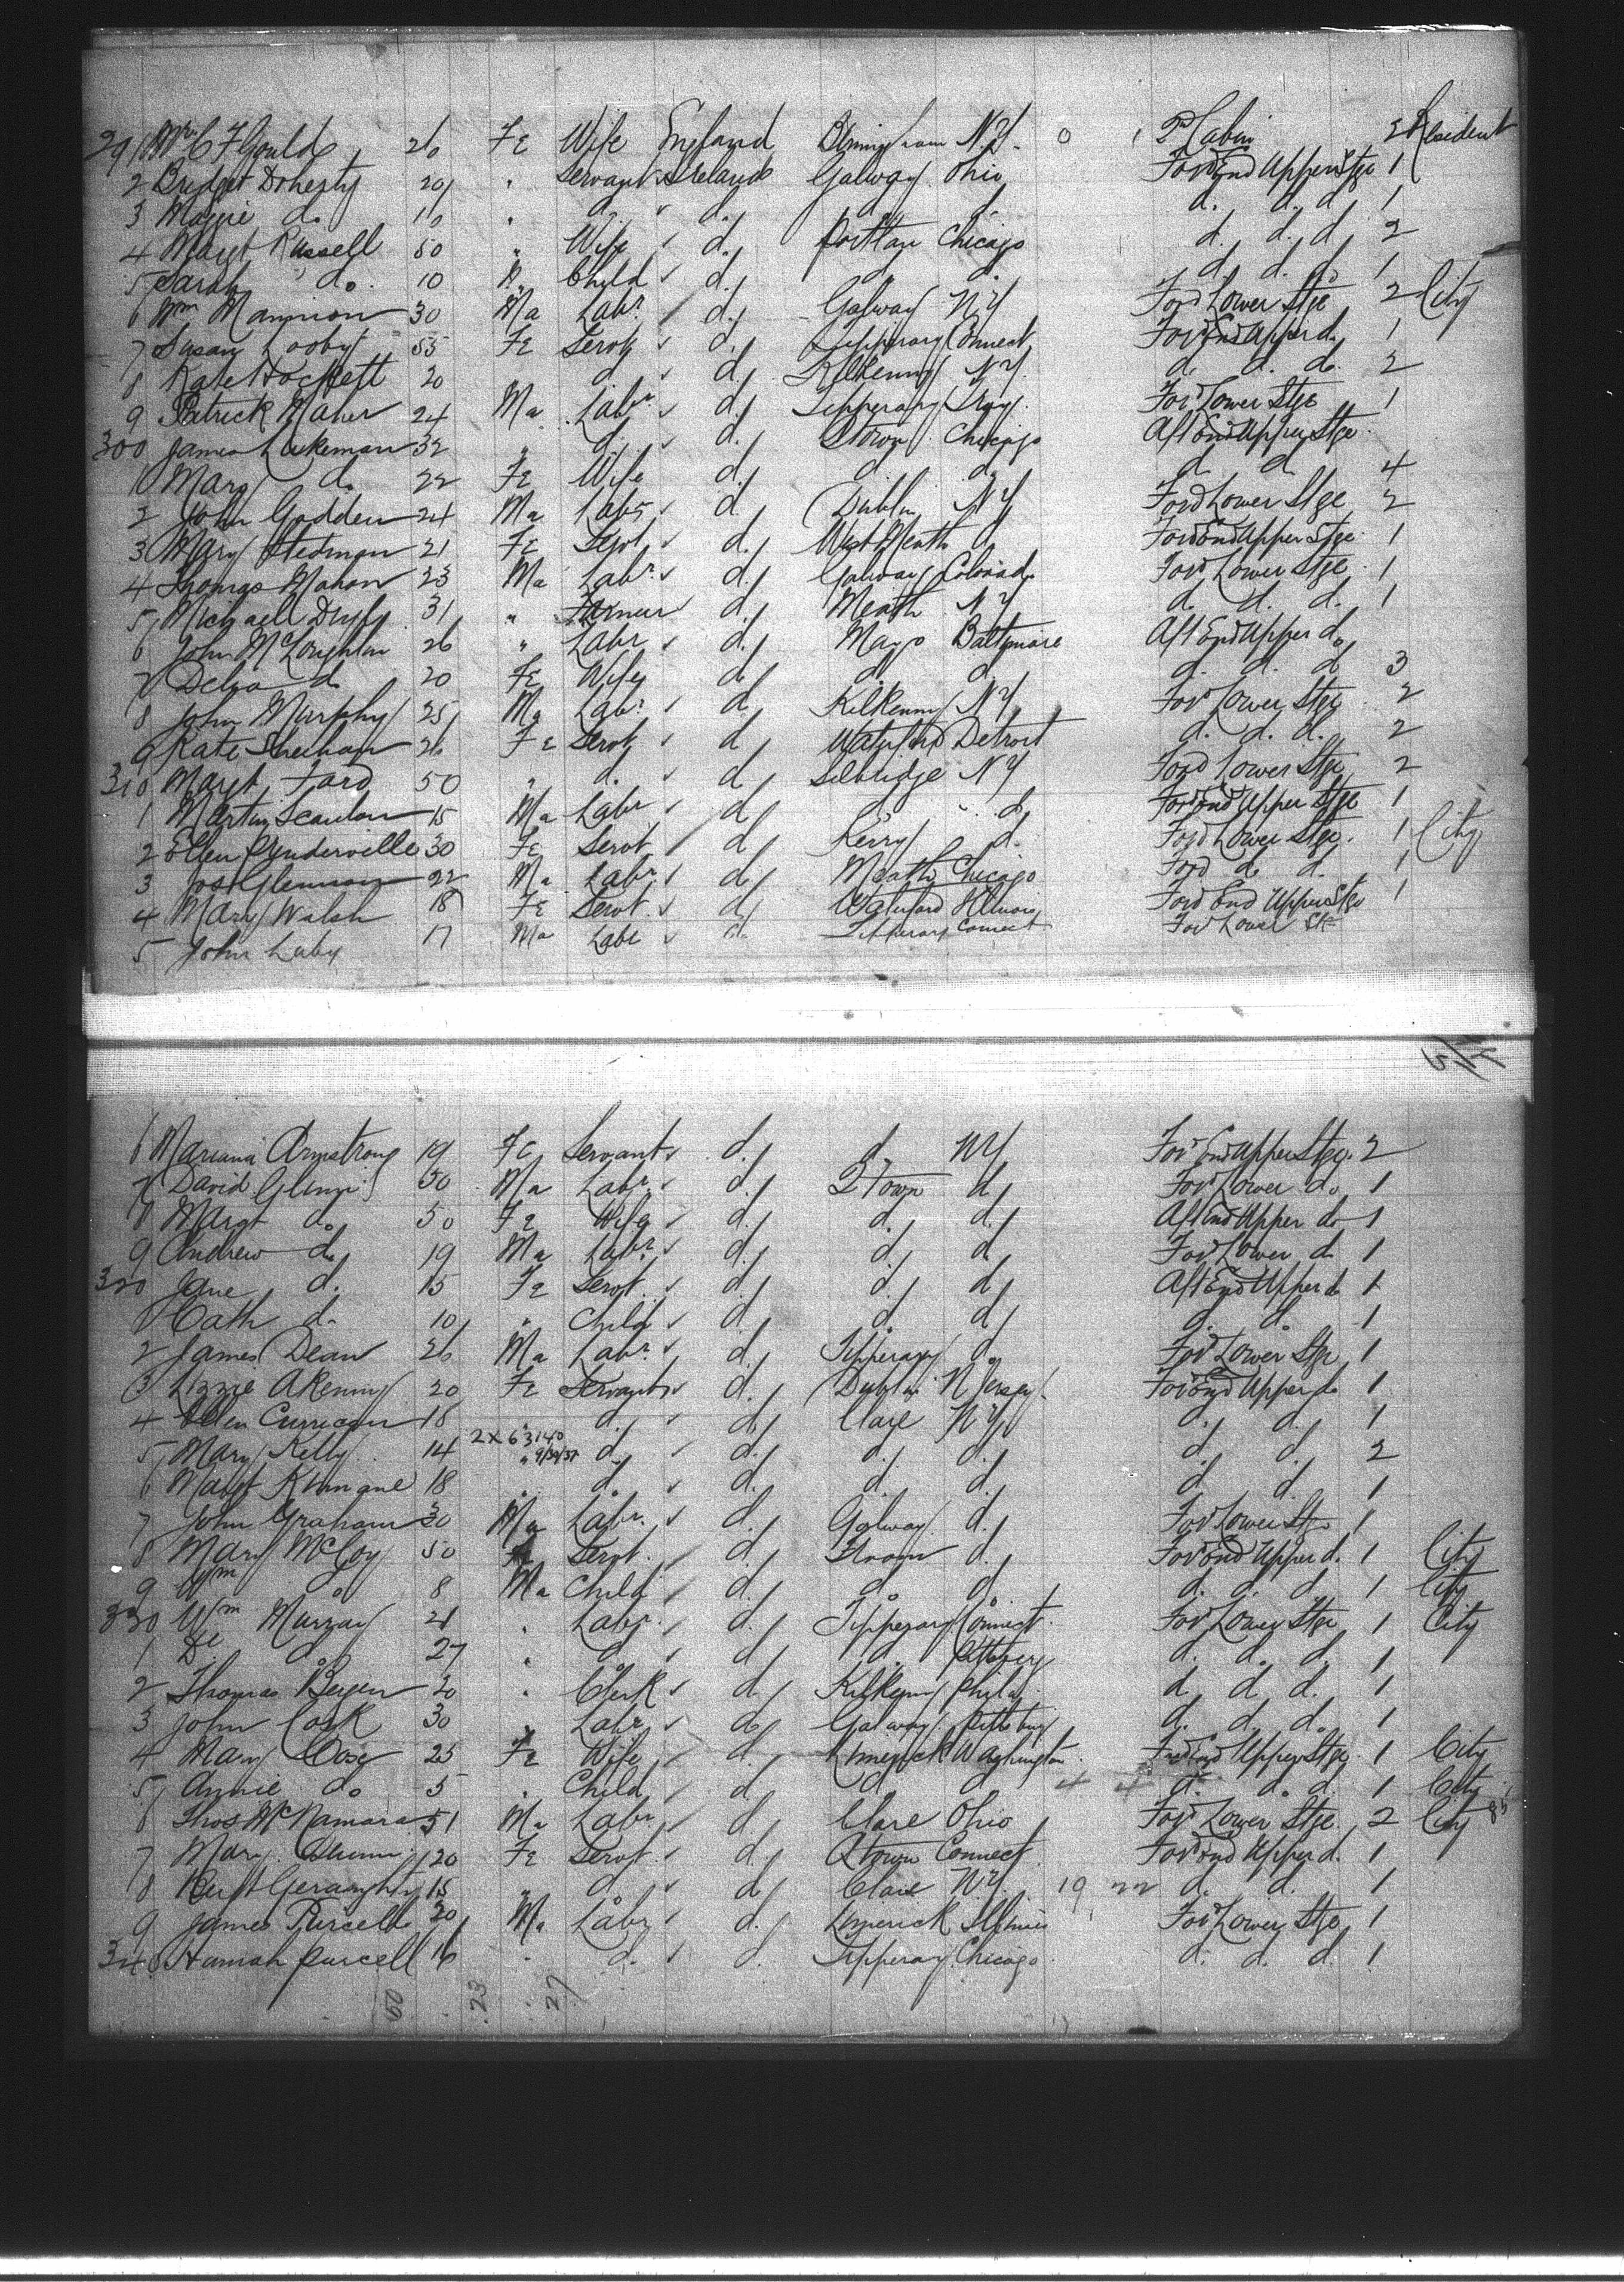 291 Mrs C F Gould 26 Fe Wife England Birmingham N.Y. 0 1 2nd Cabin 2 Resident
2 Bridget Doherty 20 " Servant Ireland Galway Ohio Ford End Upper Stge 1
3 Maggie do 10 " d. d. d d d. d. d 1
4 Margt Russell 50 " Wife d. Chicago d. d. d 2
5 Sarah do. 10 Child d. d d. d. d. d. 1
6 Wm Mannion 30 Ma Labr. d. Galway NY Ford Lower Stge 2 City
7 Susan Looby 55 Fe Servt d. Tipperary Connect Ford End Upper d. 1
8 Kate Hockett 20 d d. Kilkenny NY. d. d. do. 2
9 Patrick Maher 24 Ma Labr. d. Tipperary Troy. Ford Lower Stge 1
300 James Lakeman 32 " d d. Chicago Aft End Upper Stge
1 Mary do 22 Fe Wife d. d d. d d 4
2 John Godden 24 Ma Labr d Dublin NY Ford Lower Stge 2
3 Mary Stedman 21 Fe Servt d. West Meath d Ford End Upper Stge 1
4 Thomas Mahon 23 Ma Labr. d. Galway Colorado Ford Lower Stge 1
5 Michael Duffy 31 " Farmer d. Meath NY d. d. d. 1
6 John McLoughlin 26 " Labr d. Mayo Baltimore Aft End Upper do
7 Delia d 20 Fe Wife d d d. d. d. d 3
8 John Murphy 25 Ma Labr. d Kilkenny NY Ford Lower Stge 2
9 Kate Sheehan 26 Fe Servt d Waterford Detroit d. d. d. 2
310 Margt Ford 50 " d. d Celbridge NY Ford Lower Stge 2
1 Martin Scanlon 15 Ma Labr d d d Ford End Upper Stge 1
2 Ellen Prenderville 30 Fe Servt d Kerry d. Ford Lower Stge. 1 City
3 Jos Glennon 22 Ma Labr. d Meath Chicago Ford do d. 1
4 Mary Walsh 18 Fe Servt. d Waterford Illinois Ford End Upper Stge 1
5 John Luby 17 Ma Labr d. Tipperary Connect Ford Lower Stge
6 Armstrong 19 Fe Servant d. d NY Ford End Upper Stge. 2
7 David 50 Ma Labr. d. Q Town d Ford Lower do 1
8 Margt do 50 Fe Wife d. d. d. Aft End Upper do 1
9 Andrew do 19 Ma Labr. d. d. d Ford Lower d. 1
320 Jane d. 15 Fe Servt. d. d. d Aft End Upper do 1
1 Cath d. 10 " Child d d. d d. d. 1
2 James Dean 26 Ma Labr. d. Tipperary d. Ford Lower Stge 1
3 Lizzie A Kenny 20 Fe Servant d. Dublin N Jersey Ford End Upper do 1
4 Ellen 18 d. d. Clare NY d. d. 1
2 x 63140
5 Mary Kelly 14 " 9/30/37 d. d. d. d. d. d. 2
6 Margt Kinnane 18 " d. d. d. d. d d. 1
7 John Graham 30 Ma Labr. d. Galway d. Ford Lower Stge 1
8 Mary McCoy 50 Fe Servt. d. d. Ford End Upper d. 1 City
9 Wm do 8 Ma Child d. d. d. d. d. d. 1 City
330 Wm Murray 21 " Labr. d. Tipperary Connect Ford Lower Stge 1 City
1 do 27 " d d d. Pittsburg d. d. d. 1
2 Thomas Bergen 20 " Clerk d. Kilkenny Phila. d. d. d. 1
3 John Cosk 30 " Labr d. Galway Pittsburg d. d. d. 1
4 Mary Casey 25 Fe Wife d. Limerick Washington Ford End Upper Stge. 1 City
5 Annie do 5 " Child d d d 4 4 d. d. d. 1 City
6 Thos McNamara 51 Ma Labr d. Clare Ohio Ford Lower Stge. 2 City
7 Mary 20 Fe Servt. d. Qtown Connect Ford End Upper d. 1
8 Geraghty 15 " d. d Clare NY. 19 22 d. d. 1
9 James Purcell 20 Ma Labr d. Limerick Illinois Ford Lower Stge 1
340 Hannah Purcell 16 " d. d. Tipperary Chicago d. d. d. 1
60 23 27